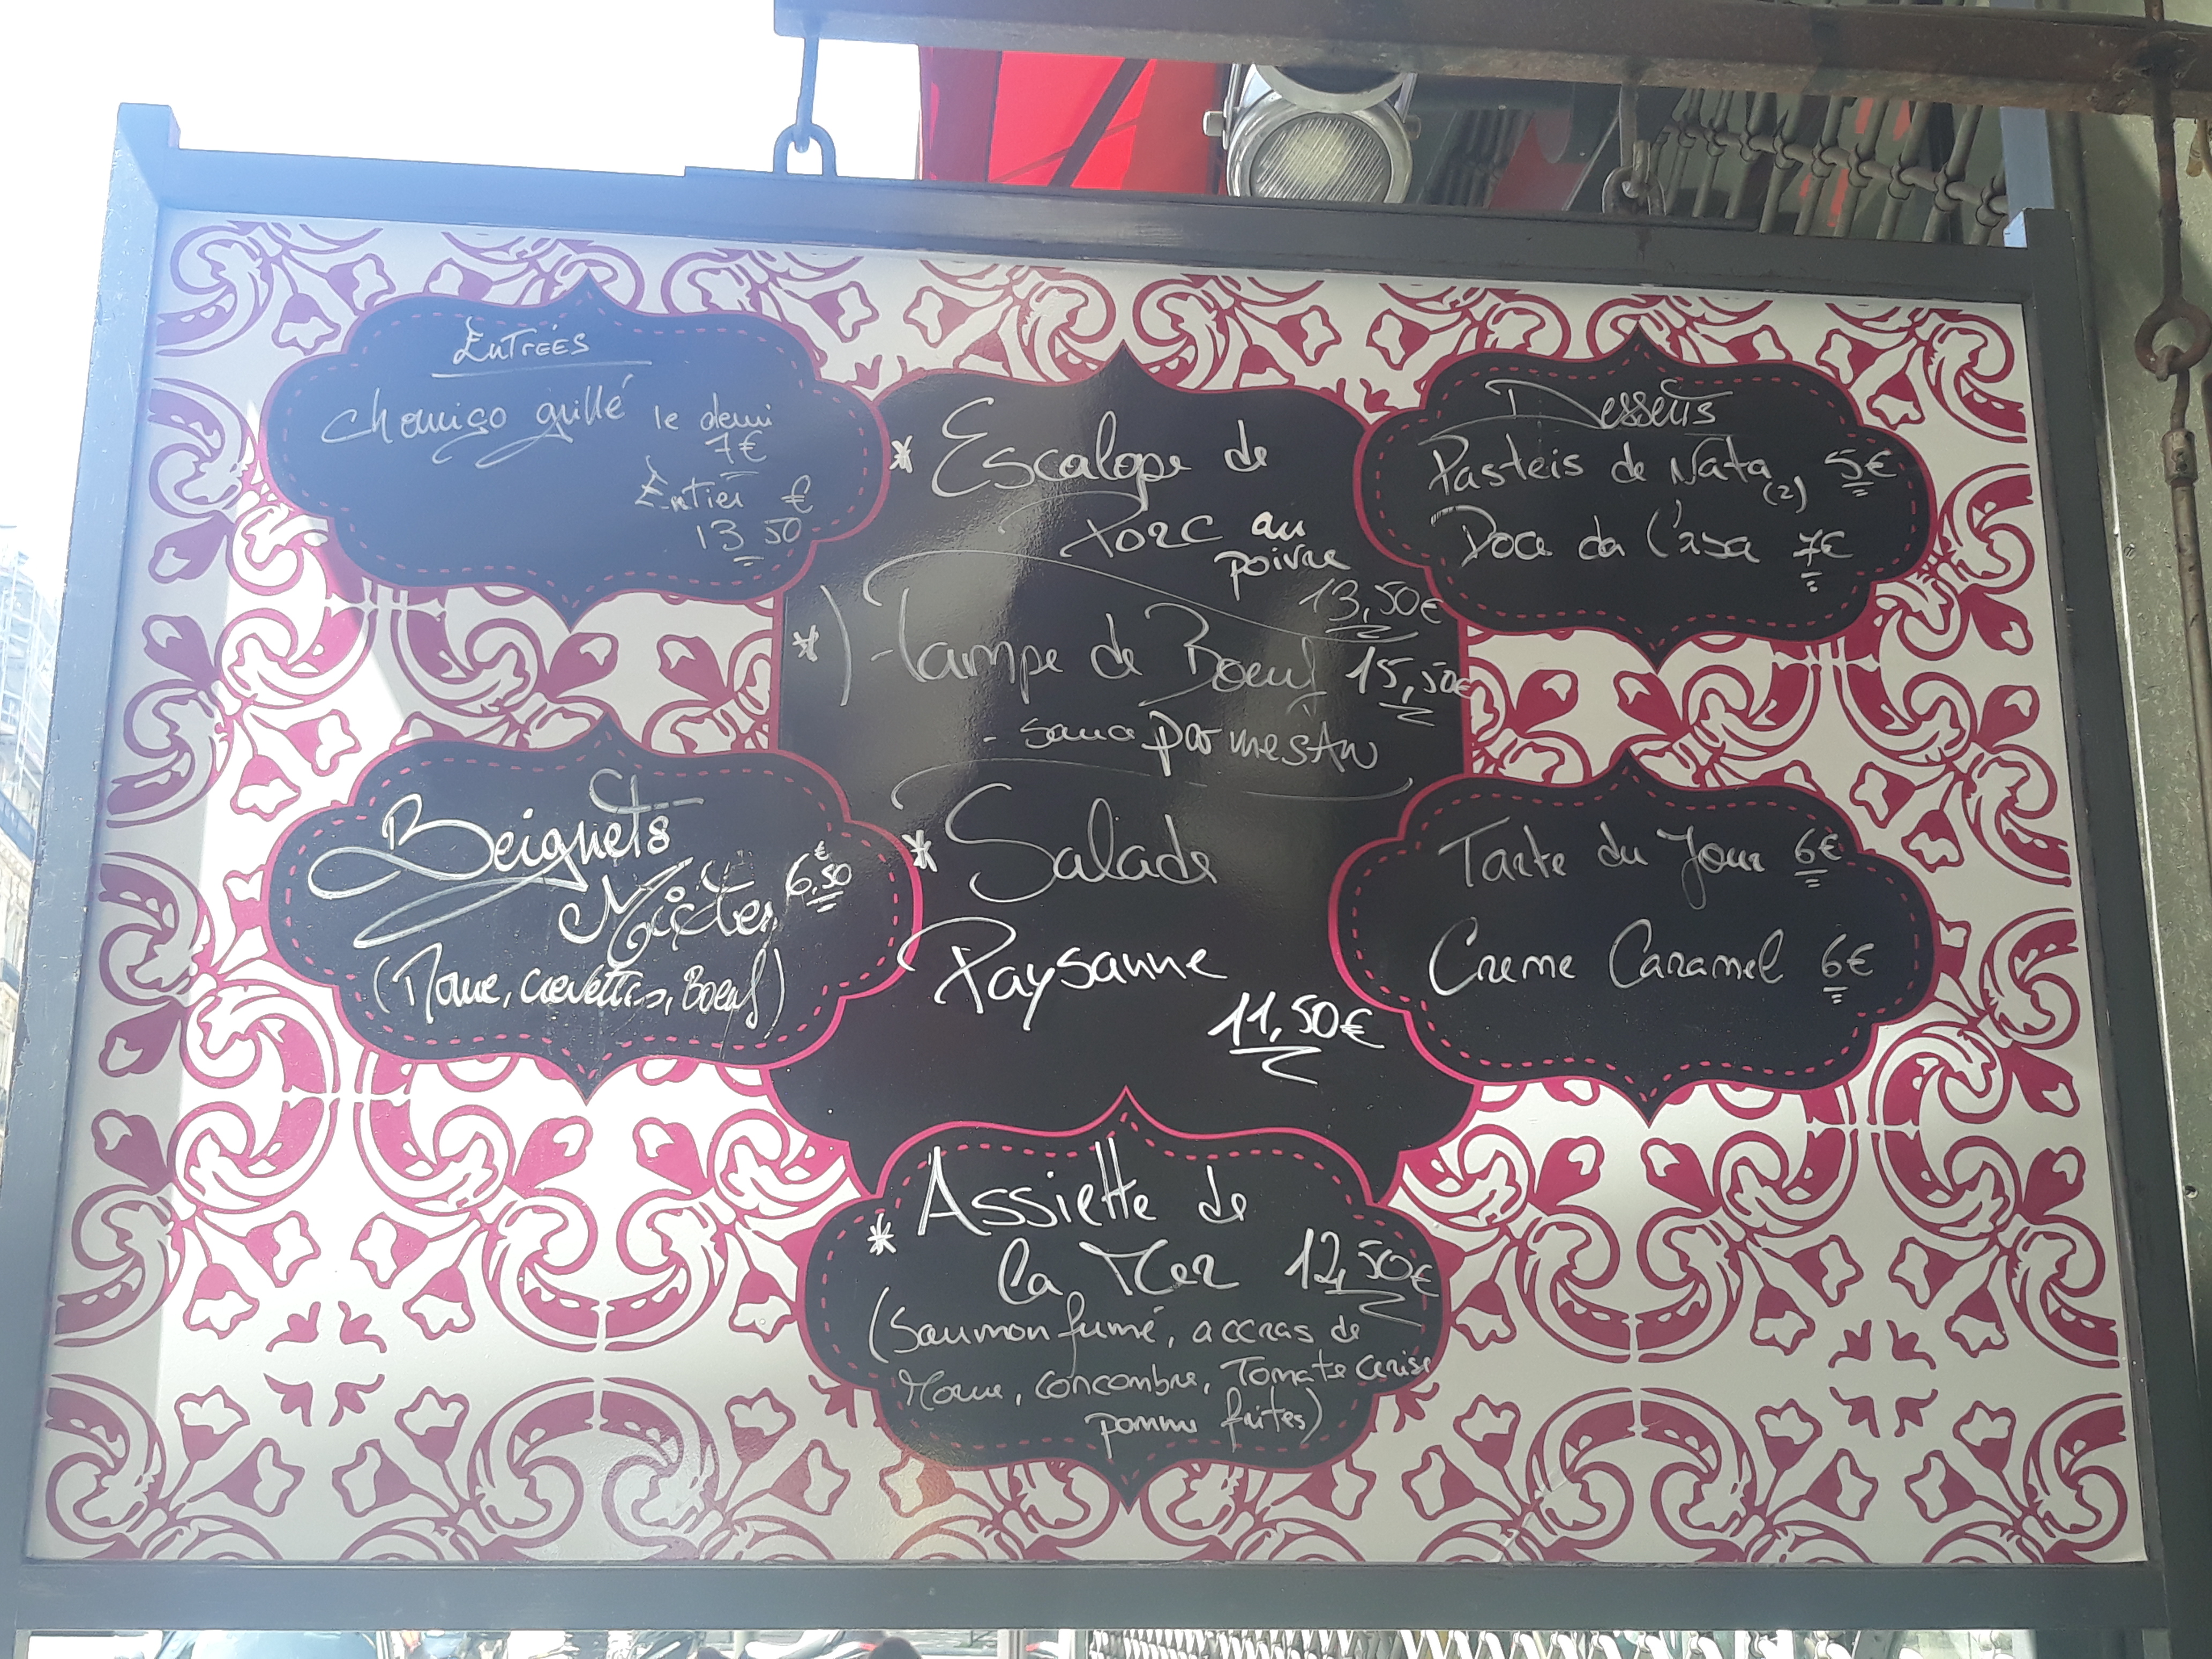 Entrées
Chouriço grillé le demi
7€
Entier €
13 50
Beignets
Mixtes 6,50€
(Morue, crevettes, Boeuf)
* Escalope de
Porc au
poivre
13,50€
*) Hampe de Boeuf 15,50€
- sauce parmesan
* Salade
Paysanne
11,50€
* Assiette de
la Mer 12,50€
(Saumon fumé, accras de
Morue, concombre, Tomate cerise
pomme frites)
Desserts
Pasteis de Nata (2) 5€
Doce da Casa 7€
Tarte du Jour 6€
Creme Caramel 6€